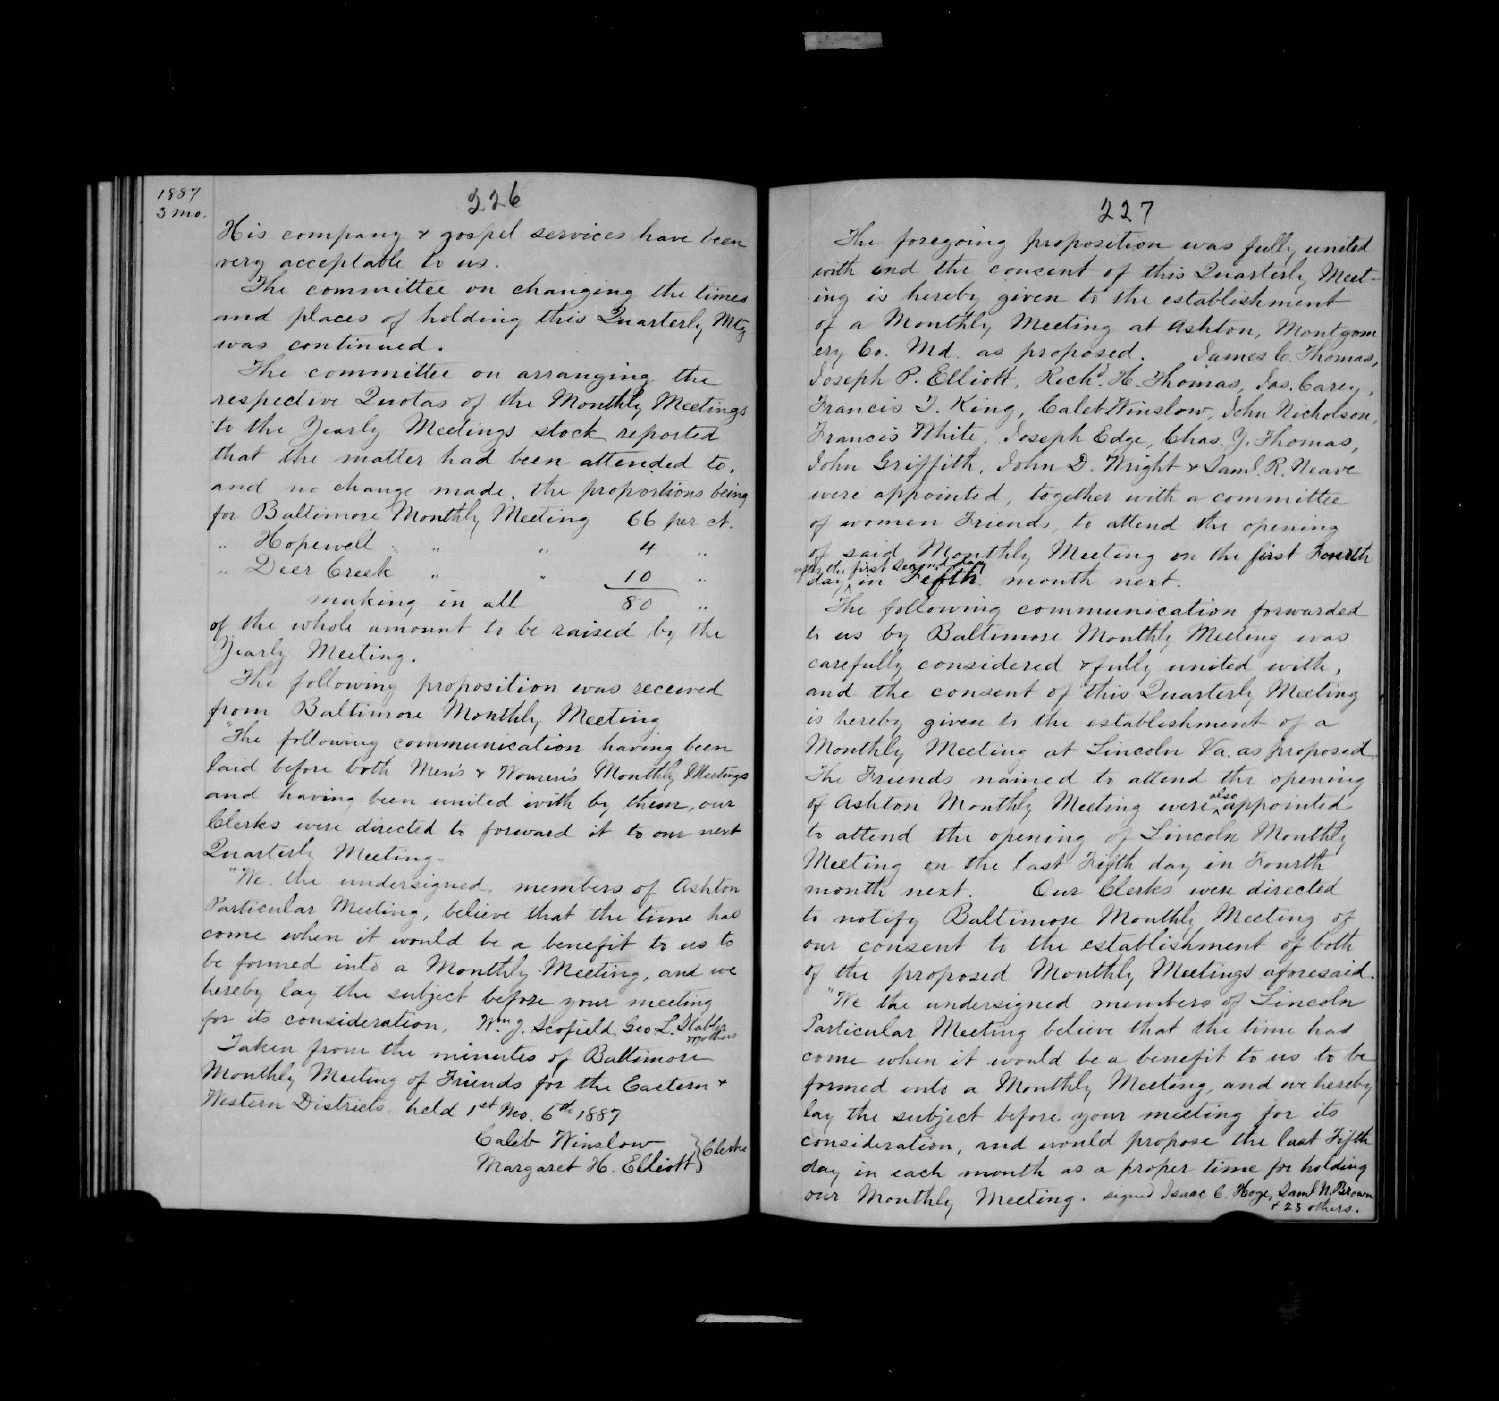 1887
3 mo.
226
His company & gospel services have been
very acceptable to us.
The committee on changing the times
and places of holding this Quarterly Mtg
was continued.
The committee on arranging the
respective Quotas of the Monthly Meetings
to the Yearly Meetings stock reported
that the matter had been attended to,
and no change made, the proportions being
for Baltimore Monthly Meeting 66 per ct.
" Hopewell " " 4 "
" Deer Creek " " 10 "
making in all 80 "
of the whole amount to be raised by the
Yearly Meeting.
The following proposition was received
from Baltimore Monthly Meeting
"The following communication having been
laid before both Men's & Women's Monthly Meetings
and having been united with by them, our
Clerks were directed to forward it to our next
Quarterly Meeting-
"We the undersigned, members of Ashton
Particular Meeting, believe that the time has
come when it would be a benefit to us to
be formed into a Monthly Meeting, and we
hereby lay the subject before your meeting
for its consideration, Wm J. Scofield, Geo L. Stabler
others
Taken from the minutes of Baltimore
Monthly Meeting of Friends for the Eastern &
Western Districts held 1st Mo. 6th 1887
Caleb Winslow
Margaret H. Elliott } Clerks
227
The foregoing proposition was fully united
with and the consent of this Quarterly Meet-
ing is hereby given to the establishment
of a Monthly Meeting at Ashton, Montgom
ery Co. Md. as proposed. James C. Thomas,
Joseph P. Elliott, Richd. H. Thomas, Jas. Carey,
Francis T. King, Caleb Winslow, John Nicholson,
Francis White, Joseph Edge, Chas. Y. Thomas,
John Griffith, John D. Wright & Saml. R. Neave
were appointed, together with a committee
of women Friends, to attend the opening
of said Monthly Meeting on the first Fourth
after the first second day
day in Fifth month next.
The following communication forwarded
to us by Baltimore Monthly Meeting was
carefully considered & fully united with,
and the consent of this Quarterly Meeting
is hereby given to the establishment of a
Monthly Meeting at Lincoln Va. as proposed
The Friends named to attend the opening
of Ashton Monthly Meeting were also appointed
to attend the opening of Lincoln Monthly
Meeting on the last Fifth day in Fourth
month next. Our Clerks were directed
to notify Baltimore Monthly Meeting of
our consent to the establishment of both
of the proposed Monthly Meetings aforesaid.
"We the undersigned members of Lincoln
Particular Meeting believe that the time had
come when it would be a benefit to us to be
formed into a Monthly Meeting, and we hereby
lay the subject before your meeting for its
consideration, and would propose the last Fifth
day in each month as a proper time for holding
our Monthly Meeting. signed Isaac C. Hoge, Saml N. Brown
& 23 others.